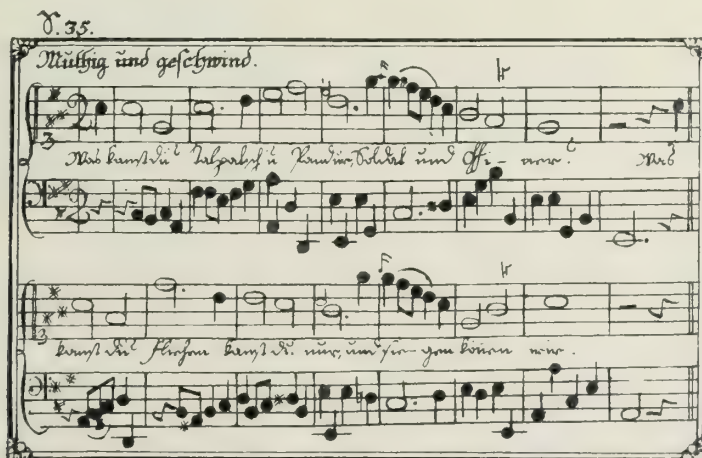 N. 35.
Muthig und geschwind.
Was kanst du Talpatsch u Pandur, Soldat und Offi- cier? Was
kanst du? fliehen kanst du nur, und sie- gen können wir.